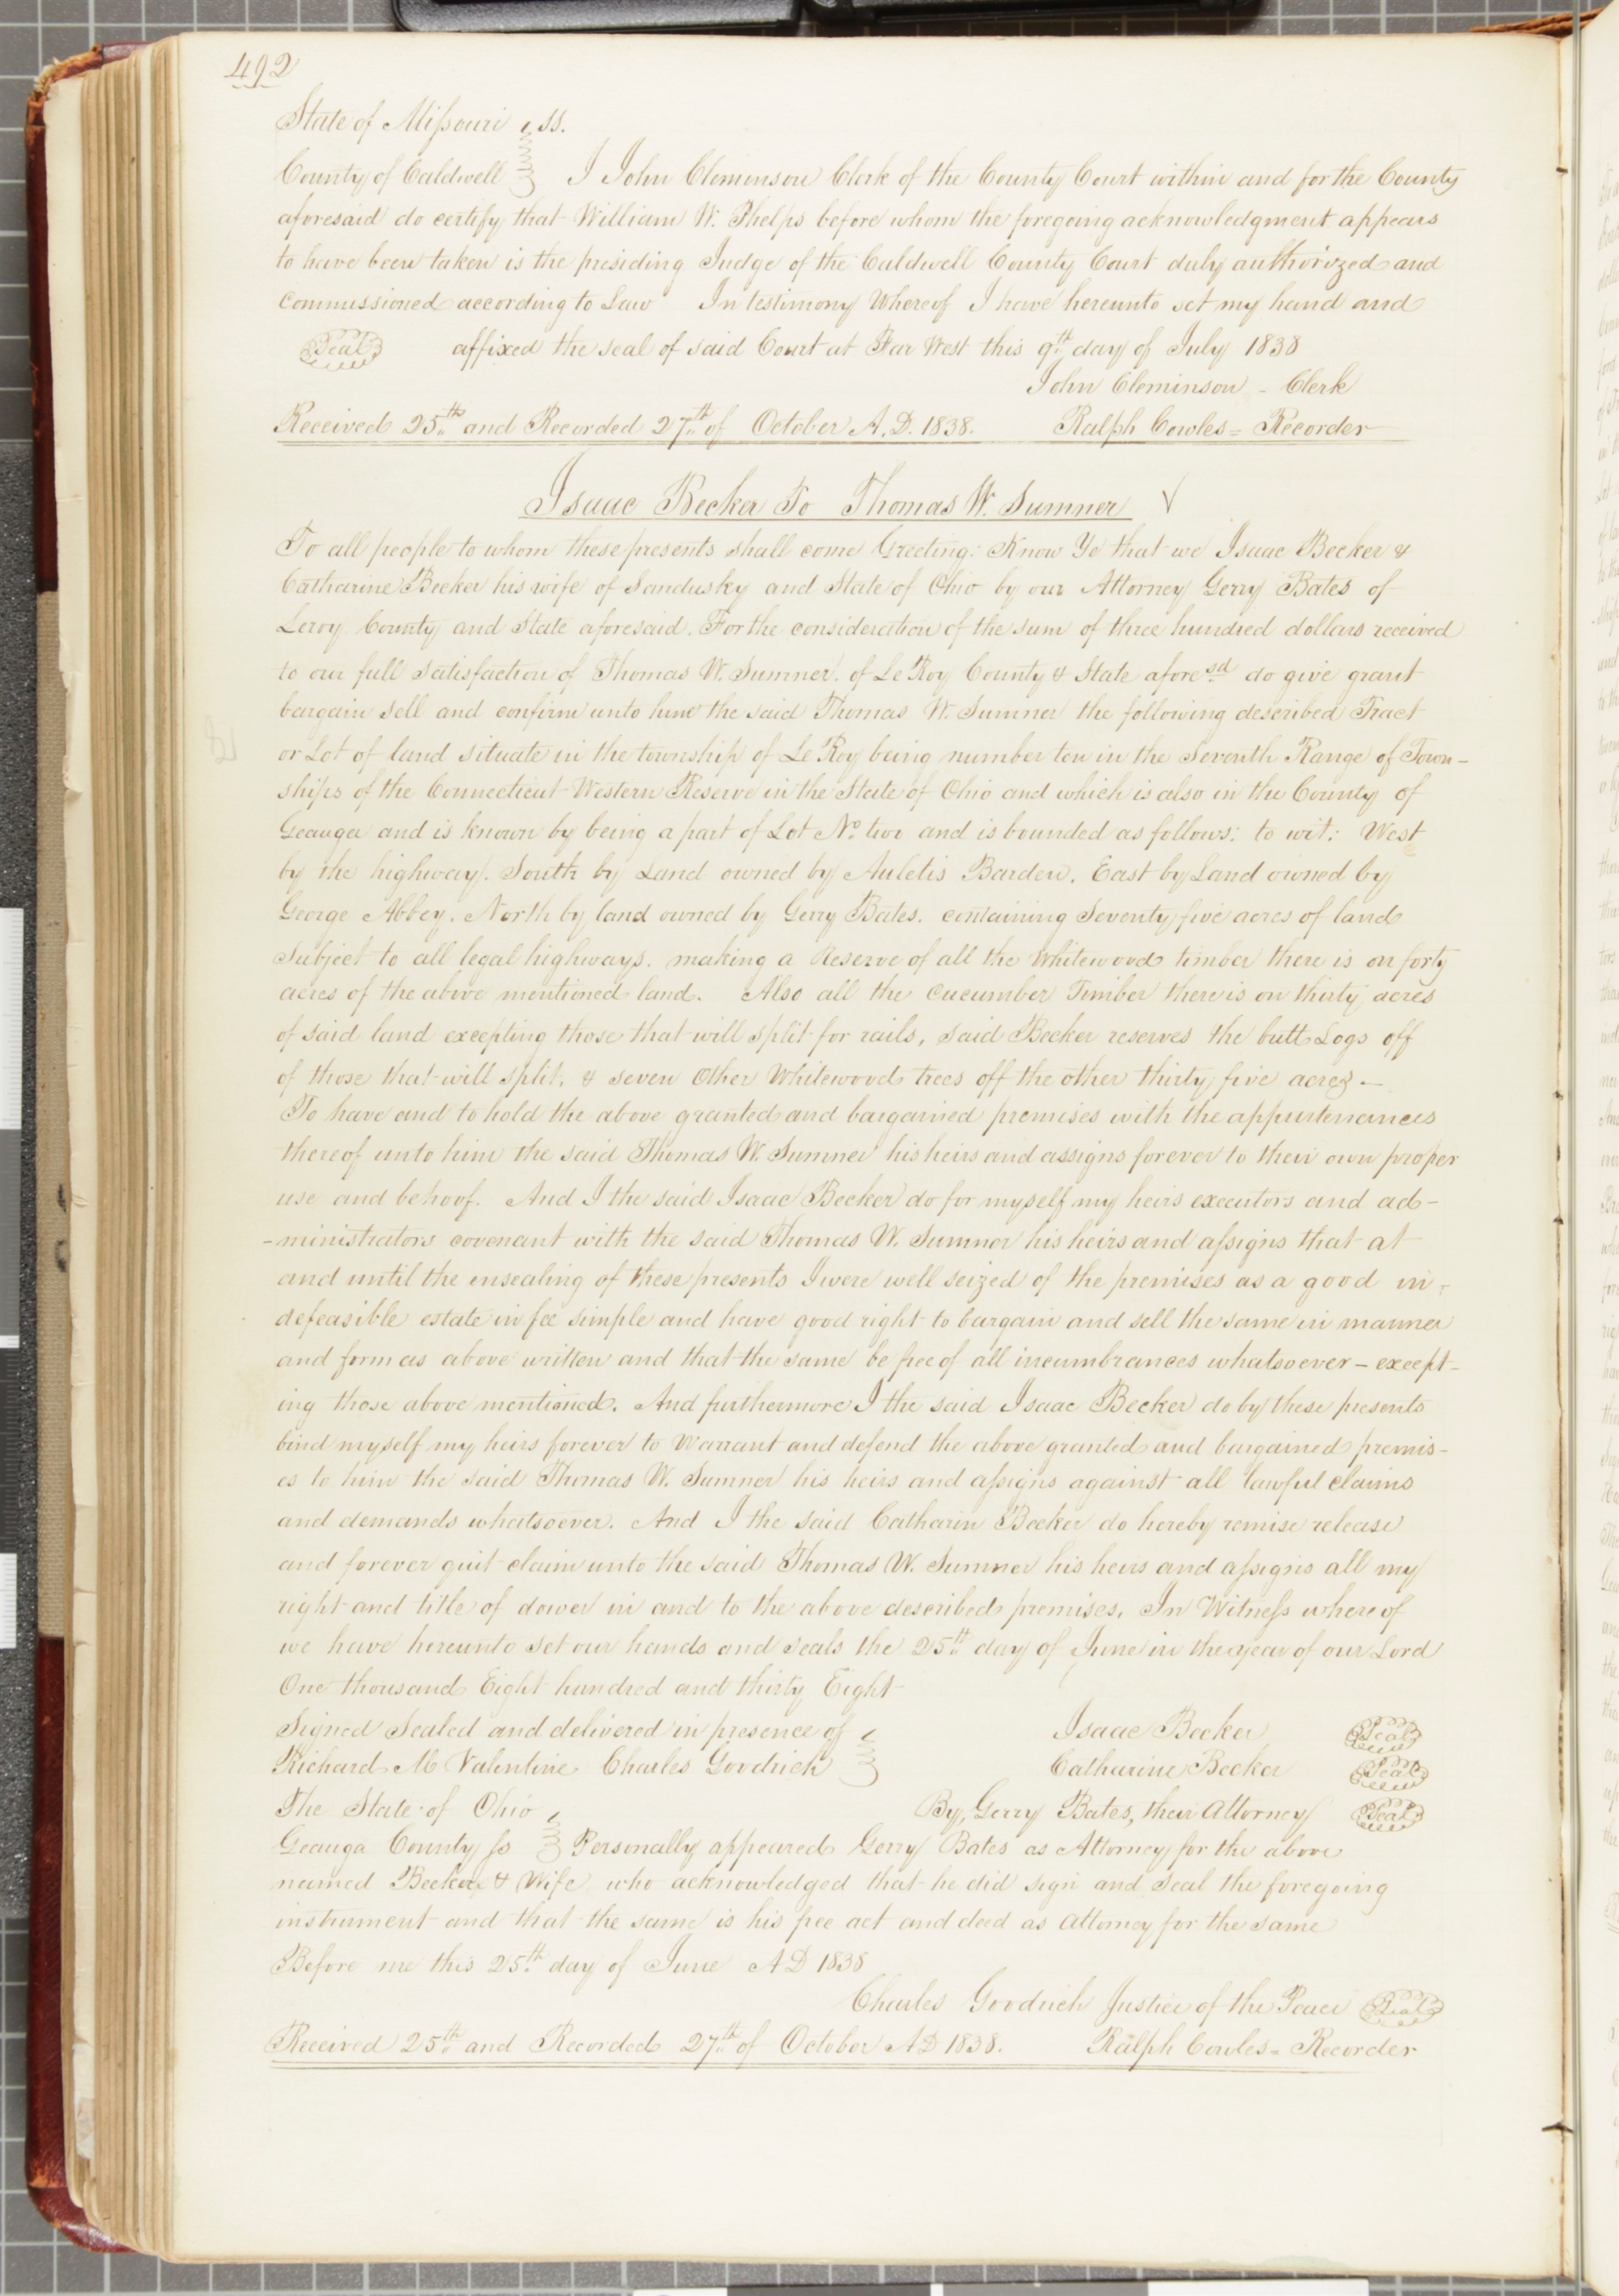 492
State of Missouri ss.
County of Caldwell I John Cleminson Clerk of the County Court within and for the County
aforesaid do certify that William W. Phelps before whom the foregoing acknowledgment appears
to have been taken is the presiding Judge of the Caldwell County Court duly authorized and
commissioned according to Law In testimony Whereof I have hereunto set my hand and
Seal affixed the seal of said Court at Far West this 9th day of July 1838
John Cleminson - Clerk
Received 25th and Recorded 27th of October A.D. 1838. Ralph Cowles = Recorder
Isaac Becker To Thomas W. Sumner
To all people to whom these presents shall come Greeting: Know Ye that we Isaac Becker &
Catharine Becker his wife of Sandusky and State of Ohio by our Attorney Gerry Bates of
Leroy County and State aforesaid. For the consideration of the sum of three hundred dollars received
to our full satisfaction of Thomas W. Sumner. of Le Roy County & State aforesd do give grant
bargain sell and confirm unto him the said Thomas W. Sumner the following described Tract
or Lot of land situate in the township of Le Roy being number ten in the Seventh Range of Town-
ships of the Connecticut Western Reserve in the State of Ohio and which is also in the County of
Geauga and is known by being a part of Lot No. two and is bounded as follows: to wit: West
by the highway. South by Land owned by Auletis Barden. East by Land owned by
George Abbey. North by land owned by Gerry Bates. containing Seventy five acres of land
Subject to all legal highways. making a Reserve of all the Whitewood timber there is on forty
acres of the above mentioned land. Also all the Cucumber Timber there is on thirty acres
of said land excepting those that will split for rails, said Becker reserves the butt Logs off
of those that will split, & seven Other Whitewood trees off the other thirty five acres -
To have and to hold the above granted and bargained premises with the appurtenances
thereof unto him the said Thomas W. Sumner his heirs and assigns forever to their own proper
use and behoof. And I the said Isaac Becker do for myself my heirs executors and ad-
-ministrators covenant with the said Thomas W. Sumner his heirs and assigns that at
and until the ensealing of these presents I were well seized of the premises as a good in-
defeasible estate in fee simple and have good right to bargain and sell the same in manner
and form as above written and that the same be free of all incumbrances whatsoever - except-
ing those above mentioned. And furthermore I the said Isaac Becker do by these presents
bind myself my heirs forever to Warrant and defend the above granted and bargained premis-
es to him the said Thomas W. Sumner his heirs and assigns against all lawful claims
and demands whatsoever. And I the said Catharin Becker do hereby remise release
and forever quit claim unto the said Thomas W. Sumner his heirs and assigns all my
right and title of dower in and to the above described premises. In Witness where of
we have hereunto set our hands and seals the 25th day of June in the year of our Lord
One thousand Eight hundred and thirty Eight
Signed Sealed and delivered in presence of Isaac Becker Seal
Richard M Valentine Charles Goodrich Catharine Becker Seal
The State of Ohio By, Gerry Bates, their Attorney Seal
Geauga County ss Personally appeared Gerry Bates as Attorney for the above
named Becker & Wife who acknowledged that he did sign and seal the foregoing
instrument and that the same is his free act and deed as Attorney for the same
Before me this 25th day of June AD 1838
Charles Goodrich Justice of the Peace Seal
Received 25th and Recorded 27th of October AD 1838. Ralph Cowles = Recorder